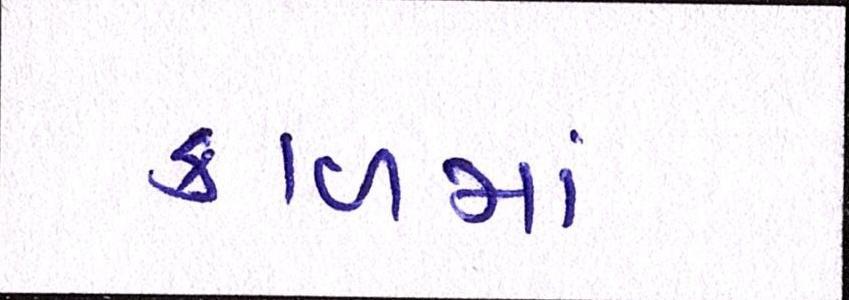 કાળમાં